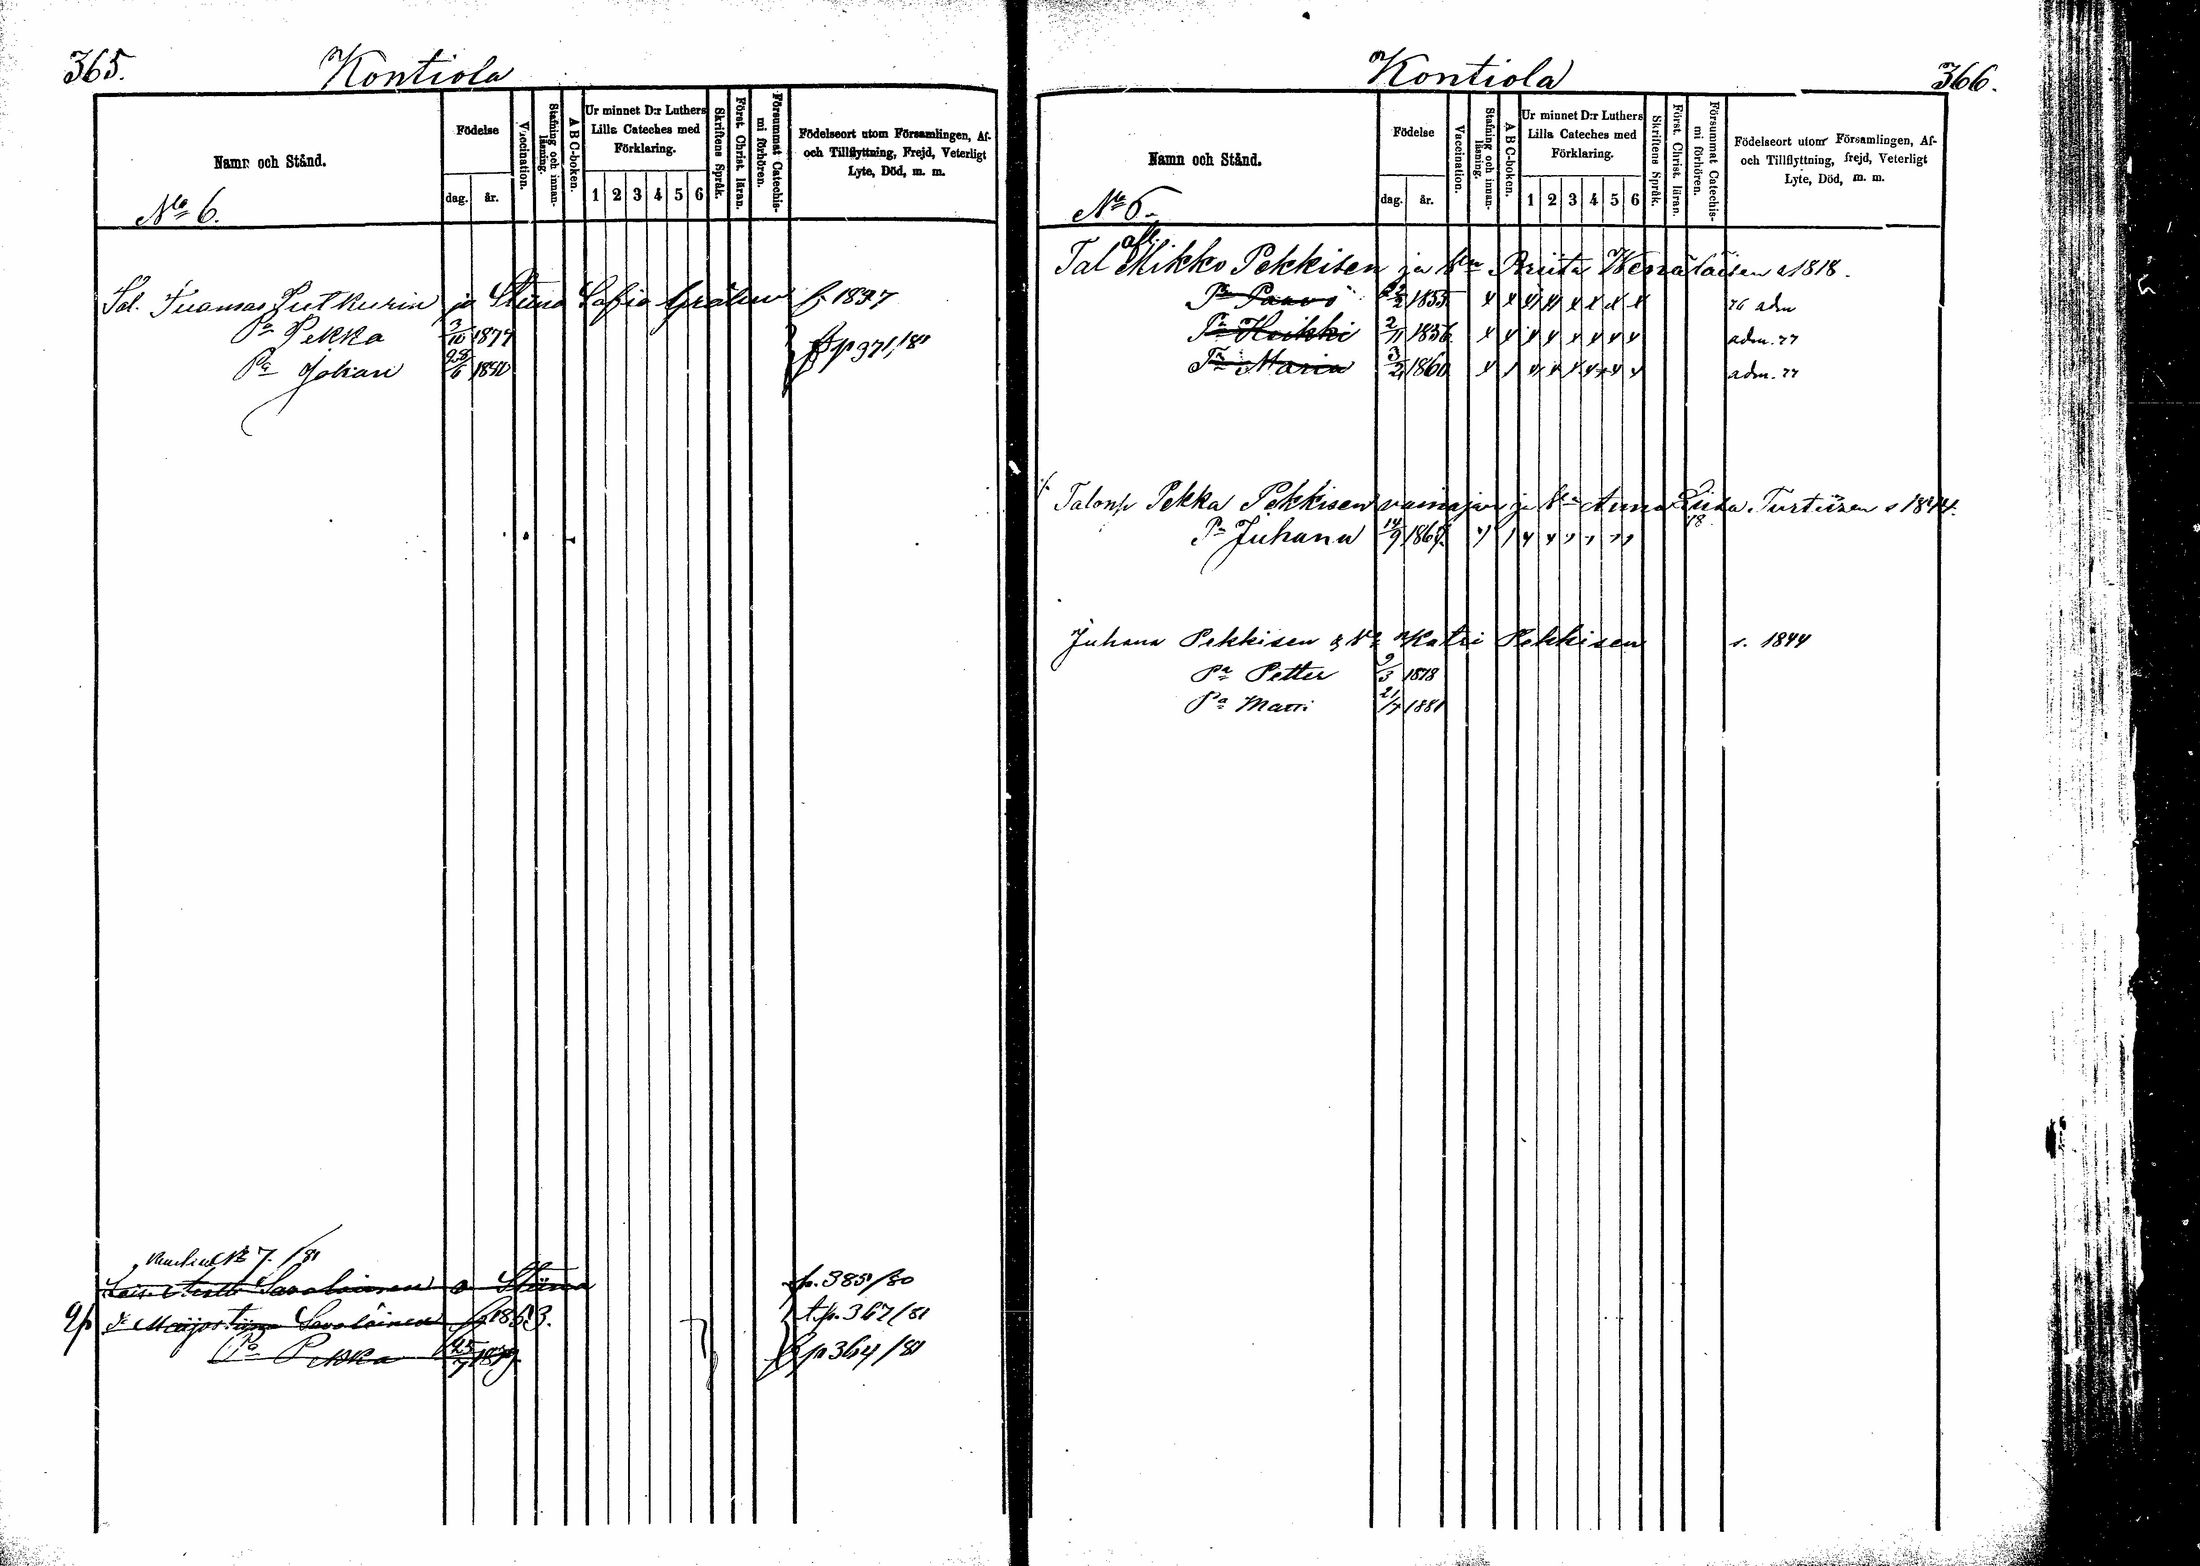 365.
Kontiola
Namn och Stånd.
Födelse
dag.
år.
Vaccination.
Stafning och innan-läsning.
A B C-boken.
Ur minnet D:r Luthers
Lilla Cateches med
Förklaring.
1 2 3 4 5 6
Skriftens Språk.
Först. Christ. läran.
Försummat Catechis-mi förhören.
Födelseort utom Församlingen, Af-
och Tillflyttning, Frejd, Veterligt
Lyte, Död, m. m.
No 6.
Sol. Tuomas Putkurin ja Stiina Sofia f. 1837
Pa Pekka 3/10 1877
Pa Johan 1880 p 371/81
7/81
Savolainen o Stiina p. 385/80
Savolainen t. p. 367/81
Pa Pekka p 364/81
Kontiola
366.
Namn och Stånd.
Födelse
dag.
år.
Vaccination.
Stafning och innan-läsning.
A B C-boken.
Ur minnet D:r Luthers
Lilla Cateches med
Förklaring.
1 2 3 4 5 6
Skriftens Språk.
Först. Christ. läran.
Försummat Catechis-mi förhören.
Födelseort utom Församlingen, Af-
och Tillflyttning, frejd, Veterligt
Lyte, Död, m. m.
No 6.
Tal Mikko Pekkisen ja Wa Riita Wenäläisen s 1818.
Pa Paavo 1855 76 adm
Pa Heikki 2/11 1856 adm. 77
Tr Maria 1860 adm. 77
Talonp Pekka Pekkisen vainajan ja Anna Liisa Turtiisen s 1844.
Pa Juhana 14/9 1867.
Juhana Pekkisen & Katri Pekkisen s. 1844
Pa Petter 9/3 1878
Pa Matti 21/7 1881